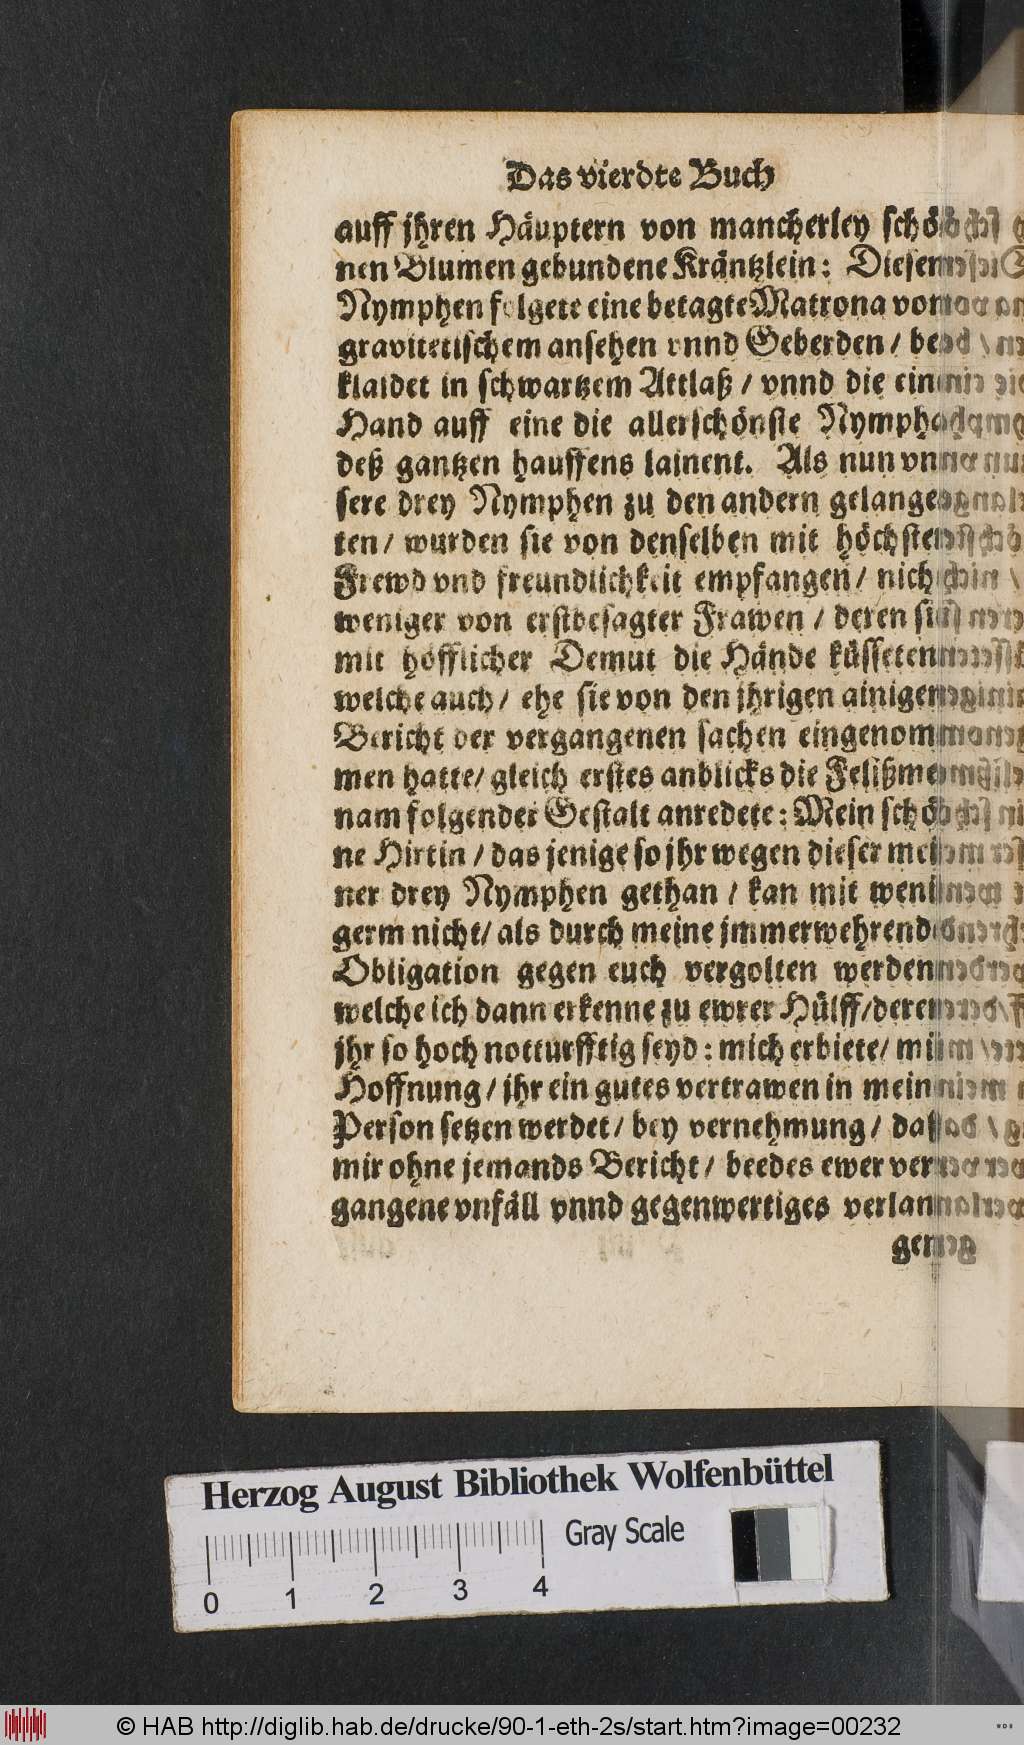 Das vierdte Buch
auff jhren Häuptern von mancherley schö
nen Blumen gebundene Kräntzlein: Diesem
Nymphen folgete eine betagte Matrona von
gravitetischem ansehen vnnd Geberden / be
klaidet in schwartzem Attlaß / vnnd die ein
Hand auff eine die allerschönste Nympha
deß gantzen hauffens lainent. Als nun vn
sere drey Nymphen zu den andern gelange
ten / wurden sie von denselben mit höchster
Frewd vnd freundlichkeit empfangen / nich
weniger von erstbesagter Frawen / deren sie
mit höfflicher Demut die Hände küsseten
welche auch / ehe sie von den jhrigen ainigen
Bericht der vergangenen sachen eingenom
men hatte / gleich erstes anblicks die Felißme
nam folgender Gestalt anredete: Mein schö
ne Hirtin / das jenige so jhr wegen dieser mei
ner drey Nymphen gethan / kan mit weni
germ nicht / als durch meine jmmerwehrend
Obligation gegen euch vergolten werden
welche ich dann erkenne zu ewrer Hülff / deren
jhr so hoch notturfftig seyd: mich erbiete / mi
Hoffnung / jhr ein gutes vertrawen in mein
Person setzen werdet / bey vernehmung / daß
mir ohne jemands Bericht / beedes ewer ver
gangene vnfäll vnnd gegenwertiges verlan
gen
Herzog August Bibliothek Wolfenbüttel
Gray Scale
0 1 2 3 4
© HAB http://diglib.hab.de/drucke/90-1-eth-2s/start.htm?image=00232